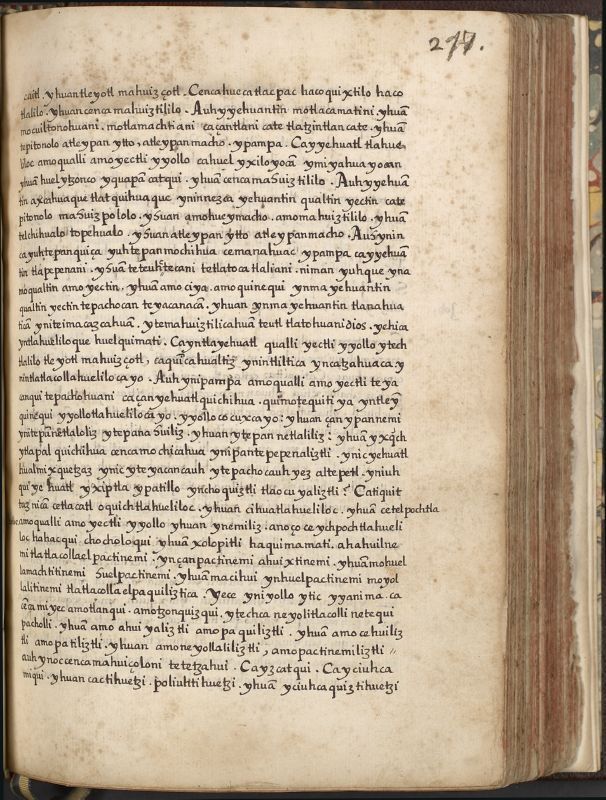 277.
caitl. yhuan tleyotl mahuizçotl. Cenca huecatlacpac hacoquixtilo haco
tlalilo. yhuan cenca mahuiztililo. Auh yyehuantin motlacamatini. yhuā
mocuiltonohuani. motlamachtiani caçantlani cate tlatzintlan cate. yhuā
tepitonolo atleypan ytto, atleypan macho. ypampa. Cayyehuatl tlahue
liloc amo qualli amo yectli yyollo cahuel yxiloyocā ymiyahuayocan
yhuā huelytzonco yquapā catqui. yhuā cenca mahuiztililo. Auh yyehuā
tin axcahuaque tlatquihuaque yninnezca yehuantin qualtin yectin cate
pitonolo mahuizpololo. yhuan amo hueymacho. amo mahuiztililo. yhuā
telchihualo topehualo. yhuan atleypan ytto atleypan macho. Auh ynin
ca yuhtepanquiça yuhtepan mochihua cemanahuac ypampa cayyehuā
tin tlapepenani. yhuā teteuhtecani tetlatocatlaliani. niman yuhque yna
mo qualtin amo yectin. yhuā amo ciya. amo quinequi ynma yehuantin
qualtin yectin tepachocan teyacanacā. yhuan ynma yehuantin tlanahua
ticā yniteimacazcahuā. ytemahuiztilicahuā teutl tlatohuani dios. yehica
yntlahueliloque huelquimati. Cayntlayehuatl qualli yectli yyollo ytech
tlalilo tleyotl mahuizçotl, caquicahualtiz ynintliltica yncatzahuaca. y
nintlatlacollahuelilocayo. Auh ynipampa amo qualli amo yectli teya
canqui tepachohuani caçan yehuatl quichihua. quimotequitiya yntley
quinequi yyollotlahuelilocayo. yyollococuxcayo: yhuan çan ypan nemi
ynitepanētlaloliz ytepanahuiliz. yhuan ytepan netlaliliz: yhuā yxqch
ytlapal quichihua cenca mochicahua ynipan tepepenaliztli. ynic yehuatl
hualmixquetzaz ynic yteyacancauh ytepachocauh yez altepetl. yniuh
qui yehuatl yxiptla ypatillo ynchoquiztli tlaocuyaliztli? Catiquit
tuz nicā cetlacatl oquichtlahueliloc. yhuan cihuatlahueliloc. yhuā cetelpochtla
amo qualli amo yectli yyollo yhuan ynemiliz. anoço ce ychpochtlahueli
loc hahacqui chocholoqui yhuā xolopitli haquimamati. ahahuilne
mi tlatlacollaelpactinemi. ynçanpactinemi ahuixtinemi. yhuā mohuel
lamachtitinemi huelpactinemi. yhuā macihui ynhuelpactinemi moyol
lalitinemi tlatlacollaelpaquiliztica. Yece yniyollo ytic yyanima. ca
cēca miyec amotlanqui. amotzonquizqui. ytechca neyolitlacolli netequi
pacholli. yhuā amo ahuiyaliztli amo paquiliztli. yhuā amo cehuiliz
tli amo patiliztli. yhuan amo neyollaliliztli, amo pactinemiliztli
auh ynoccenca mahuiçoloni tetetzahui. Cayzcatqui. Ca yciuhca
miqui. yhuan cactihuetzi. poliuhtihuetzi. yhuā yciuhca quiztihuetzi